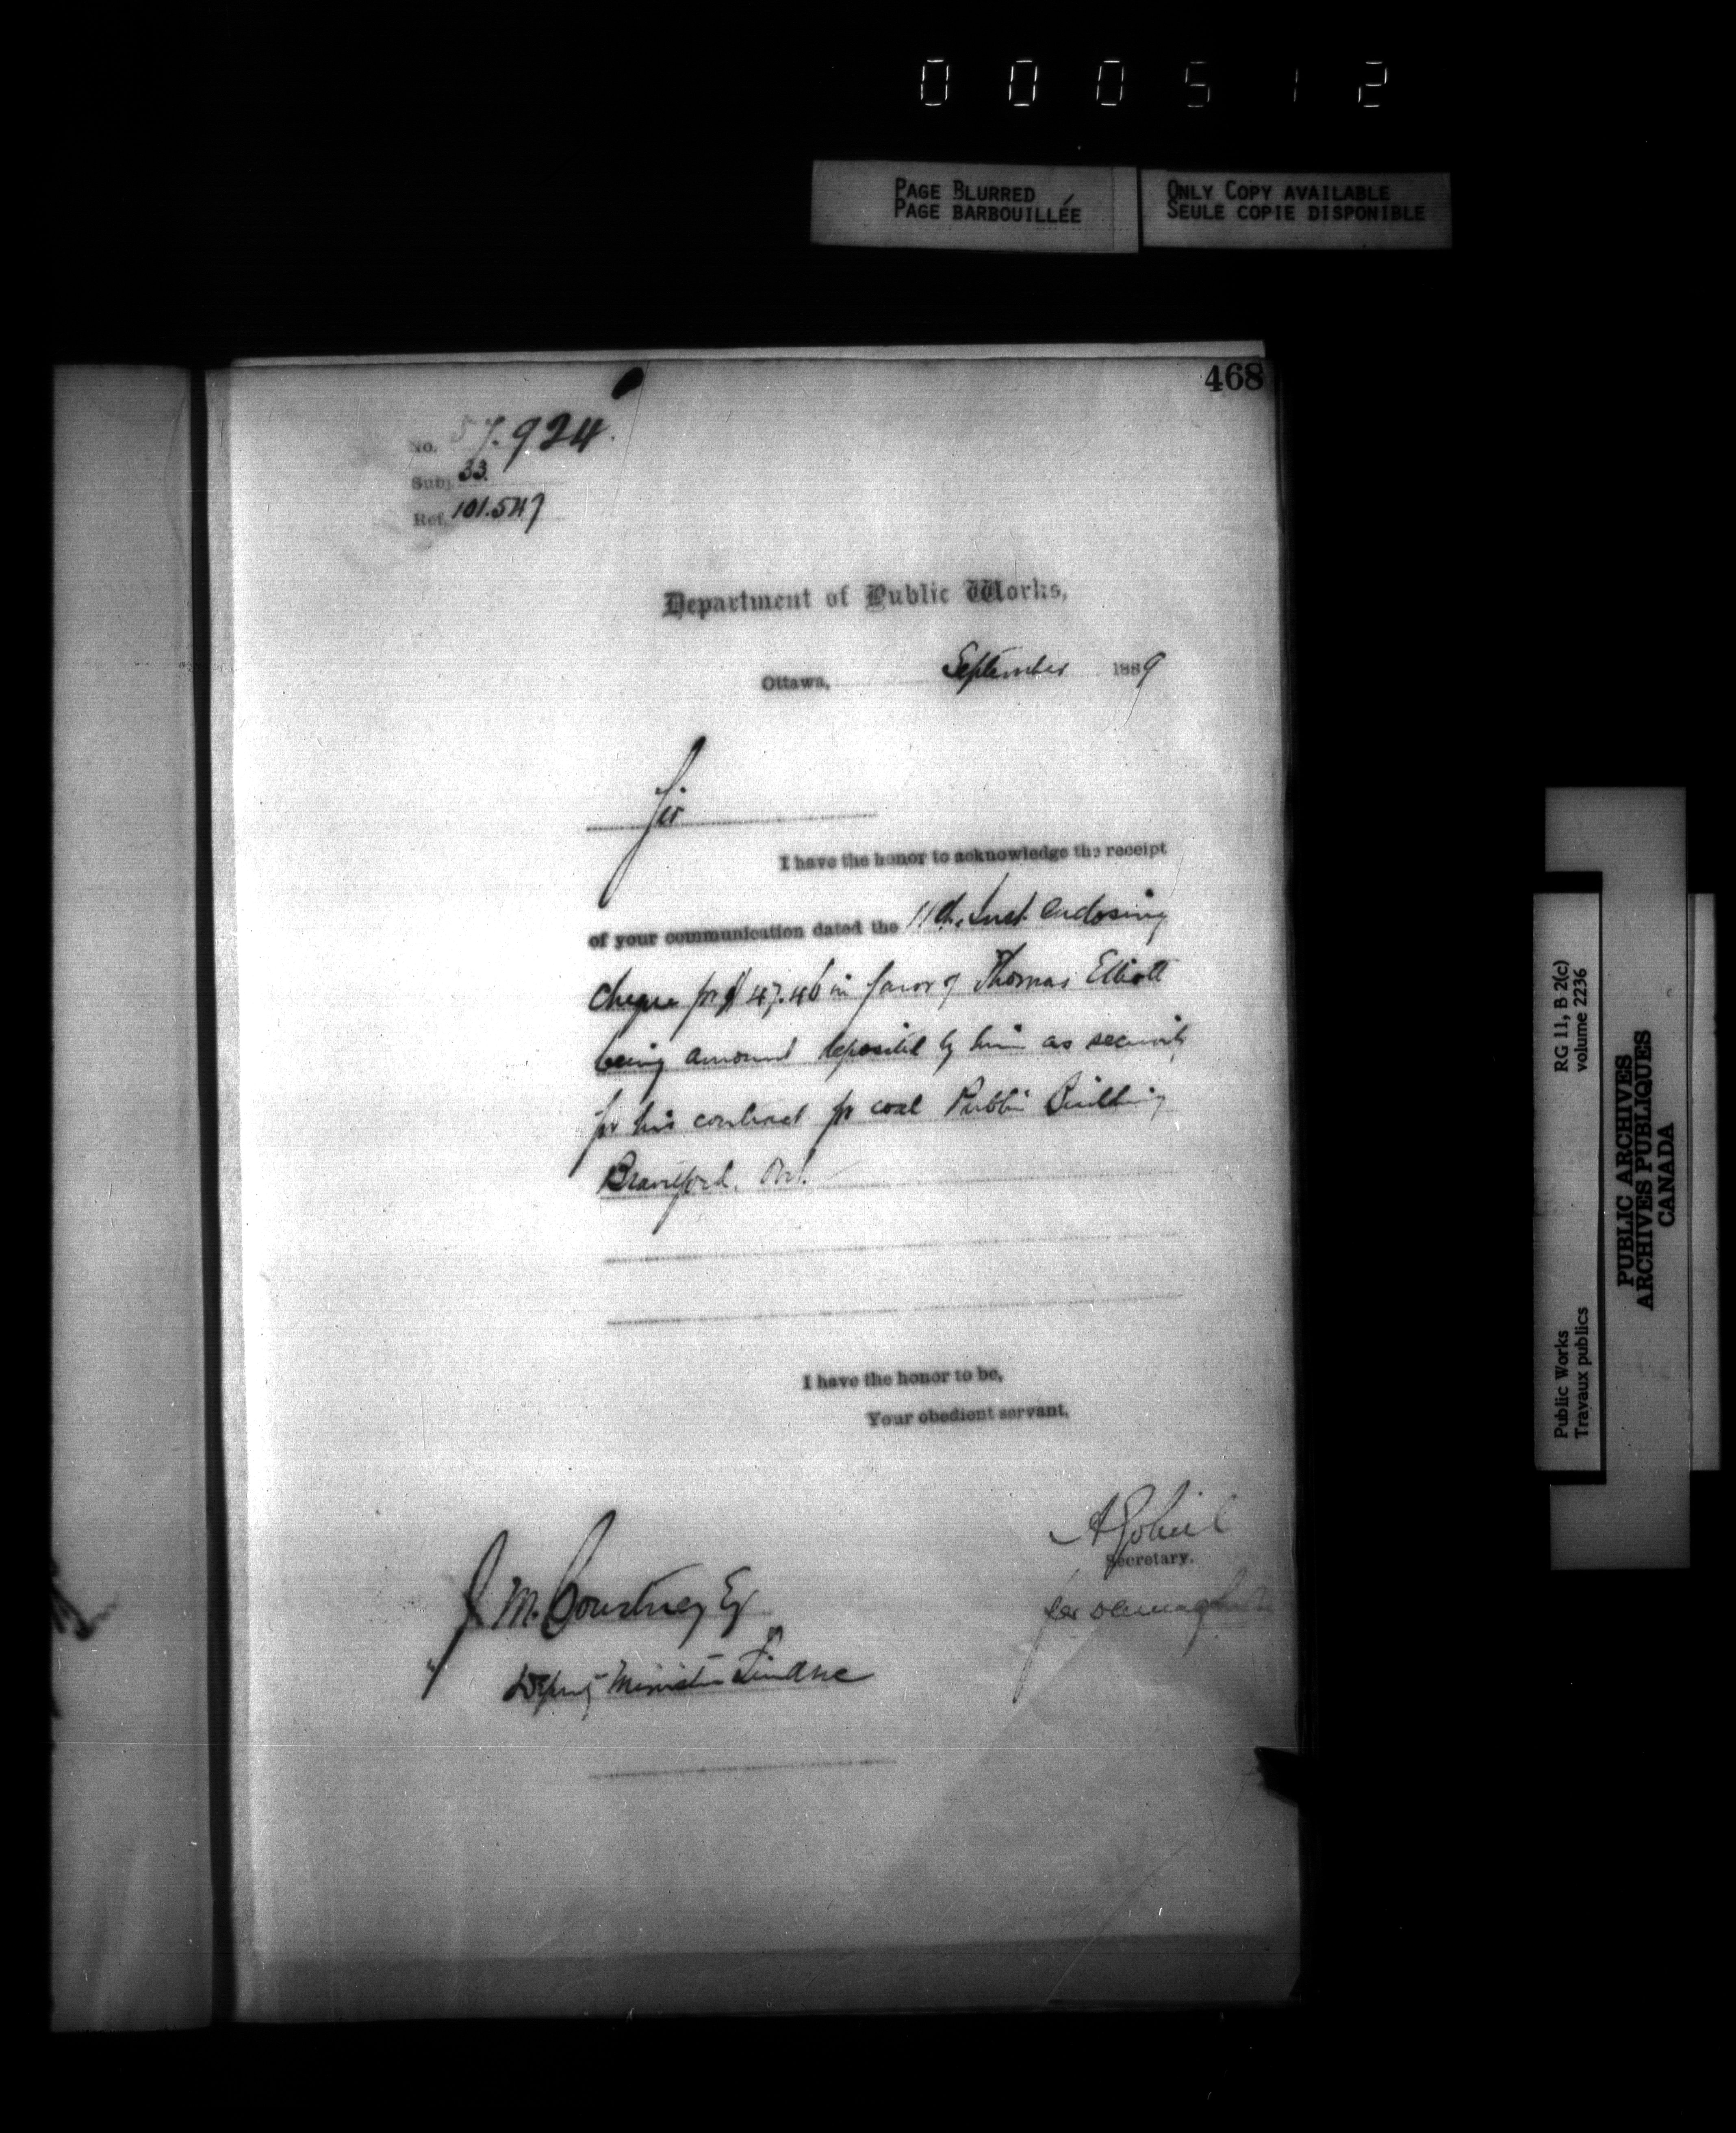 000512
PAGE BLURRED
PAGE BARBOUILLÉE
ONLY COPY AVAILABLE
SEULE COPIE DISPONIBLE
468
No. 57.924
Subj. 33.
Ref. 101.547
Department of Public Works,
Ottawa, September 1889
Sir
I have the honor to acknowledge the receipt
of your communication dated the 11th. Inst. enclosing
cheque for $47.46 in favor of Thomas Elliott
being amount deposited by him as security
for his contract for coal Public Building
Brantford. Ont.
I have the honor to be,
Your obedient servant,
A Gobeil
Secretary.
J. M. Courtney Esq
Deputy Minister of Finance
RG 11, B 2(c)
volume 2236
Public Works
Travaux publics
PUBLIC ARCHIVES
ARCHIVES PUBLIQUES
CANADA